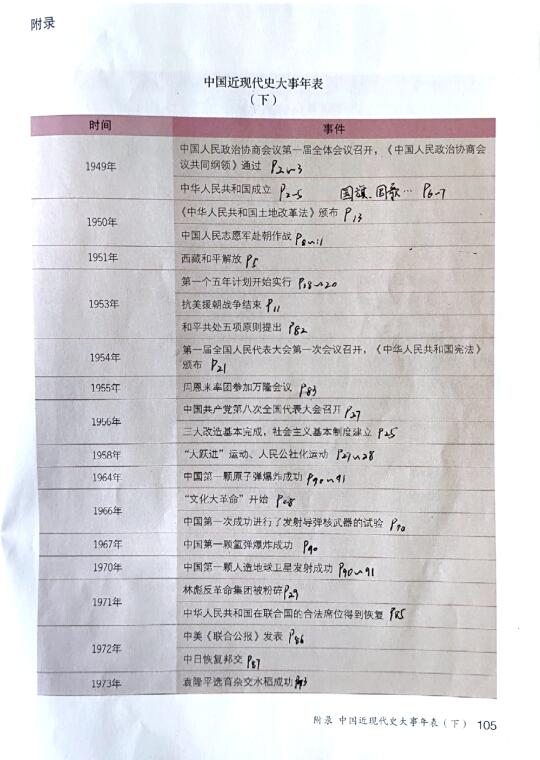 附录
中国近现代史大事年表
（下）
时间 事件
1949年
中国人民政治协商会议第一届全体会议召开，《中国人民政治协商会
议共同纲领》通过 P2~3
中华人民共和国成立 P2-5 国旗、国歌… P6-7
1950年
《中华人民共和国土地改革法》颁布 P13
中国人民志愿军赴朝作战 P8~11
1951年 西藏和平解放 P5
1953年
第一个五年计划开始实行 P18~20
抗美援朝战争结束 P11
和平共处五项原则提出 P82
1954年
第一届全国人民代表大会第一次会议召开，《中华人民共和国宪法》
颁布 P21
1955年 周恩来率团参加万隆会议 P83
1956年
中国共产党第八次全国代表大会召开 P27
三大改造基本完成，社会主义基本制度建立 P25
1958年 “大跃进”运动、人民公社化运动 P27~28
1964年 中国第一颗原子弹爆炸成功 P90~91
1966年
“文化大革命”开始 P28
中国第一次成功进行了发射导弹核武器的试验 P90
1967年 中国第一颗氢弹爆炸成功 P90
1970年 中国第一颗人造地球卫星发射成功 P90~91
1971年
林彪反革命集团被粉碎 P29
中华人民共和国在联合国的合法席位得到恢复 P85
1972年
中美《联合公报》发表 P86
中日恢复邦交 P87
1973年 袁隆平选育杂交水稻成功
附录 中国近现代史大事年表（下） 105